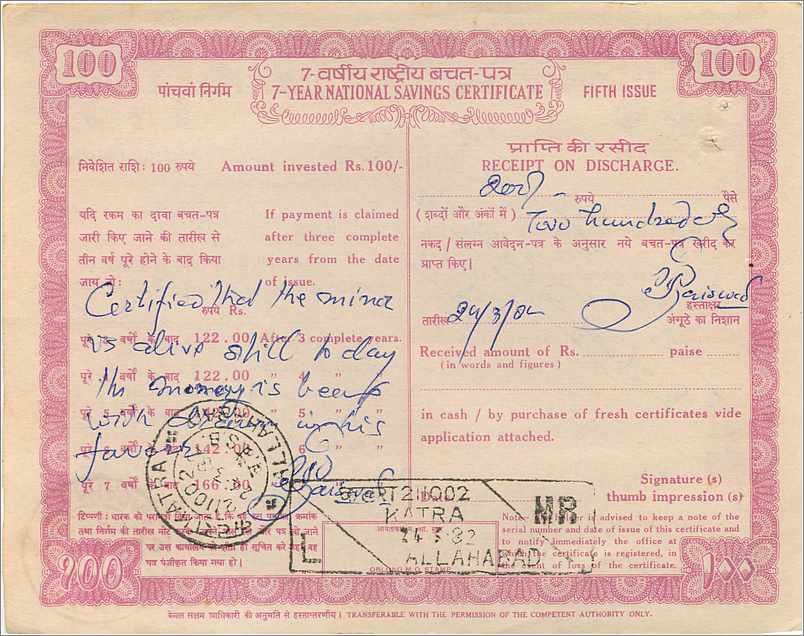 100
100
7-वर्षीय राष्ट्रीय बचत-पत्र
पांचवां निर्गम
7-YEAR NATIONAL SAVINGS CERTIFICATE
FIFTH ISSUE
निवेशित राशि: 100 रुपये Amount invested Rs.100/-
यदि रकम का दावा बचत-पत्र
जारी किए जाने की तारीख से
तीन वर्ष पूरे होने के बाद किया
जाय तो:
If payment is claimed
after three complete
years from the date
of issue.
Certified that the minor
रुपये Rs.
पूरे 3 वर्षों के बाद 122.00 After 3 complete years.
is alive still to day
पूरे 4 वर्षों के बाद 122.00 " 4 " "
the money is being
पूरे 5 वर्षों के बाद " 5 " "
with drawn in his
142.00 " 6 " "
favour
पूरे 7 वर्षों के बाद 166.00
Jaiswal
प्राप्ति की रसीद
RECEIPT ON DISCHARGE.
200/-
रुपये पैसे
(शब्दों और अंकों में) Two hundred only
नकद / संलग्न आवेदन-पत्र के अनुसार नये बचत-पत्र खरीद कर
प्राप्त किए।
Jaiswal
हस्ताक्षर
तारीख 24/3/82
अंगूठे का निशान
Received amount of Rs. paise
(in words and figures)
in cash / by purchase of fresh certificates vide
application attached.
Signature (s)
thumb impression (s)
KATRA
ALLAHABAD
211002
211002
KATRA
24 3 82
ALLAHABAD
OBLONG M.O STAMP
Note- is advised to keep a note of the
serial number and date of issue of this certificate and
to notify immediately the office at
which the certificate is registered, in
the event of loss of the certificate.
100
100
केवल सक्षम प्राधिकारी की अनुमति से हस्तान्तरणीय। TRANSFERABLE WITH THE PERMISSION OF THE COMPETENT AUTHORITY ONLY.